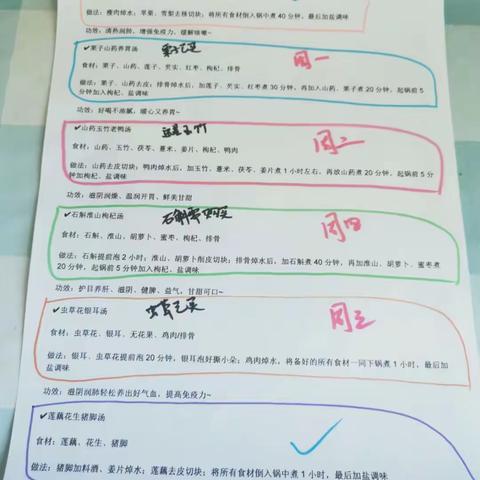 做法：瘦肉焯水；苹果、雪梨去核切块；将所有食材倒入锅中煮 40 分钟，最后加盐调味
功效：清热润肺，增强免疫力，缓解咳嗽~
✔栗子山药养胃汤
周一
食材：栗子、山药、莲子、芡实、红枣、枸杞、排骨
做法：栗子、山药去皮；排骨焯水后，加莲子、芡实、红枣煮 30 分钟，再加入山药、栗子煮 20 分钟，起锅前 5
分钟加入枸杞、盐调味
功效：好喝不油腻，暖心又养胃~
✔山药玉竹老鸭汤
周二
食材：山药、玉竹、茯苓、薏米、姜片、枸杞、鸭肉
做法：山药去皮切块；鸭肉焯水后，加玉竹、薏米、茯苓、姜片煮 1 小时左右，再放山药煮 20 分钟，起锅前 5
分钟加枸杞、盐调味
功效：滋阴润燥、温润开胃、鲜美甘甜
✔石斛淮山枸杞汤
周四
食材：石斛、淮山、胡萝卜、蜜枣、枸杞、排骨
做法：石斛提前泡 2 小时；淮山、胡萝卜削皮切块；排骨焯水后，加石斛煮 40 分钟，再加淮山、胡萝卜、蜜枣煮
20 分钟，起锅前 5 分钟加入枸杞、盐调味
功效：护目养肝、滋阴、健脾、益气，甘甜可口~
✔虫草花银耳汤
周三
食材：虫草花、银耳、无花果、鸡肉/排骨
做法：银耳、虫草花提前泡 20 分钟，银耳泡好撕小朵；鸡肉焯水，将备好的所有食材一同下锅煮 1 小时，最后加
盐调味
功效：滋阴润肺轻松养出好气血，提高免疫力~
✔莲藕花生猪脚汤
食材：莲藕、花生、猪脚
做法：猪脚加料酒、姜片焯水；莲藕去皮切块；将所有食材倒入锅中煮 1 小时，最后加盐调味